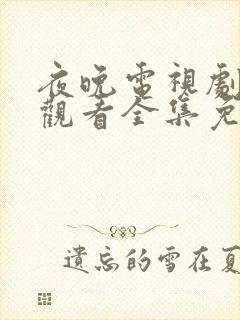 夜晚電視劇
觀看全集免
遺忘的雪在夏